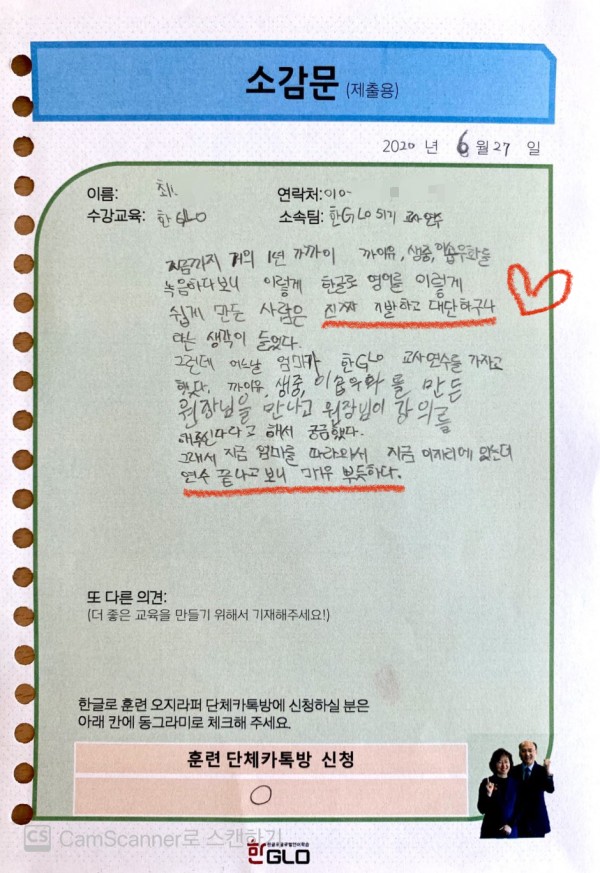 소감문 (제출용)
2020 년 6월 27 일
이름: 최
연락처: 010
수강교육: 한GLO
소속팀: 한GLO 51기 교사연수
지금까지 거의 1년 가까이 까이유, 생중, 이솝우화를
녹음하다보니 이렇게 한글로 영어를 이렇게
쉽게 만든 사람은 진짜 기발하고 대단하구나
라는 생각이 들었다.
그런데 어느날 엄마가 한GLO 교사연수를 가자고
했다. 까이유, 생중, 이솝우화를 만든
원장님을 만나고 원장님이 강의를
해주신다라고 해서 궁금했다.
그래서 지금 엄마를 따라와서 지금 이자리에 있는데
연수 끝나고 보니 매우 뿌듯하다.
또 다른 의견:
(더 좋은 교육을 만들기 위해서 기재해주세요!)
한글로 훈련 오지라퍼 단체카톡방에 신청하실 분은
아래 칸에 동그라미로 체크해 주세요.
훈련 단체카톡방 신청
CS CamScanner로 스캔하기
한GLO